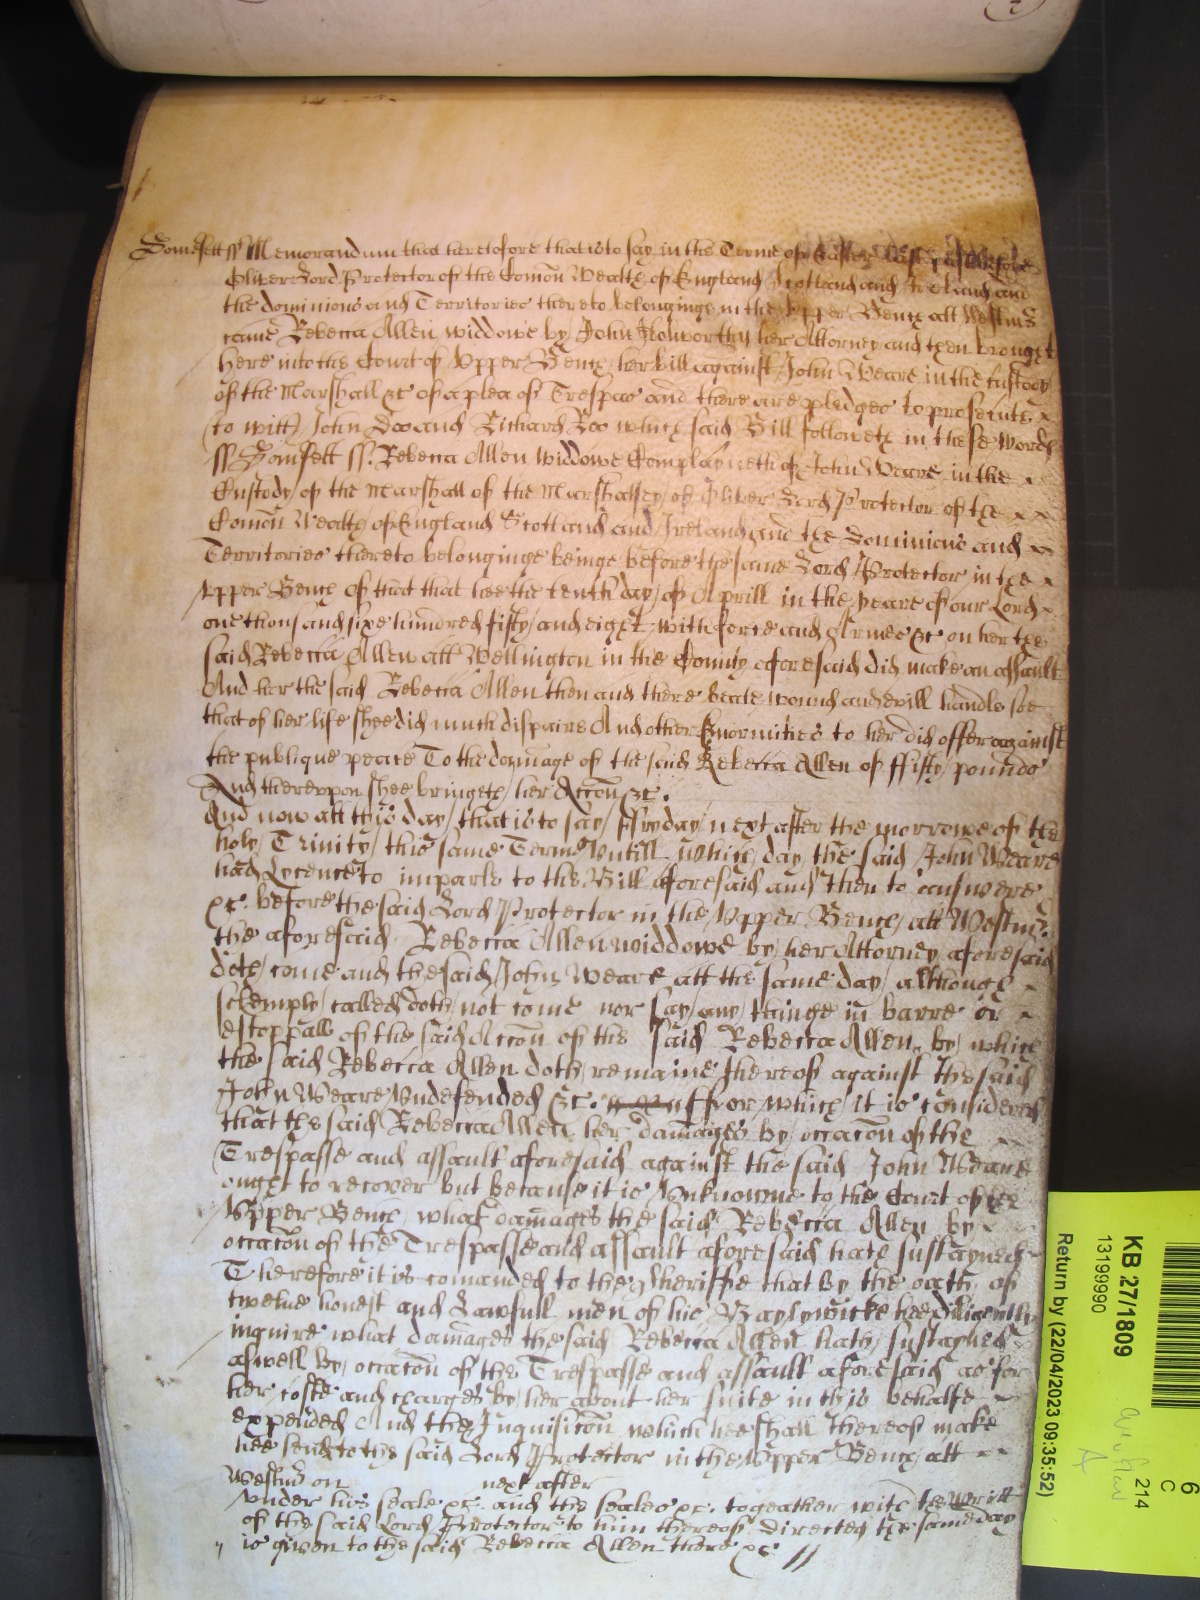 Somersett ss Memorandum that heretofore that is to say in the Terme of Easter last past before
Oliver Lord Protector of the Comon Wealth of England Scotland and Ireland and
the dominions and Territories thereto belonginge in the Upper Bench att Westmr
came Rebecca Allen widdowe by John Holworthy her Attorney and then brought
here into the Court of Upper Bench her bill against John Weare in the custody
of the Marshall &c of a plea of Trespas and there are pledges to prosecute
(to witt) John Doo and Richard Roo which said Bill followeth in these words
ss Somsett ss. Rebecca Allen widdowe Complayneth of John Weare in the
Custody of the Marshall of the Marshalsey of Oliver Lord Protector of the
Comon Wealth of England Scotland and Ireland and the Dominions and
Territories thereto belonginge beinge before the same Lord Protector in the
Upper Bench Of that that hee the tenth day of Aprill in the yeare of our Lord
one thousand sixe hundred fifty and eight with force and Armes &c on her the
said Rebecca Allen att Wellington in the County aforesaid did make an assault
And her the said Rebecca Allen then and there beate wound and evill handle soe
that of her life shee did much dispaire And other Enormities to her did offer against
the publique peace To the domage of the said Rebecca Allen of ffifty pounds
And thereuppon shee bringeth her Accon &c.
And now att this day that is to say ffryday next after the morrowe of the
holy Trinity this same Terme Untill which day the said John Weare
had Lycence to imparle to the Bill aforesaid and then to answere
&c. before the said Lord Protector in the Upper Bench att Westmr.
the aforesaid Rebecca Allen widdowe by her Attorney aforesaid
doth come and the said John Weare att the same day although
solemply called doth not come nor say any thinge in barre or
estoppall of the said Accon of the said Rebecca Allen by which
the said Rebecca Allen doth remaine thereof against the said
John Weare Undefended &c. ffor which it is considered
that the said Rebecca Allen her damages by occacon of the
Trespasse and assault aforesaid against the said John Weare
ought to recover but because it is Unknowne to the Court of the
Upper Bench what damages the said Rebecca Allen by
occacon of the Trespasse and assault aforesaid hath sustayned
Therefore it is comanded to the Sheriffe that by the oath of
twelve honest and Lawfull men of his Baylywicke hee diligently
inquire what damages the said Rebecca Allen hath sustayned
aswell by occacon of the Trespasse and assault aforesaid as for
her costs and charges by her about her suite in this behalfe
expended And the Inquisicon which hee shall thereof make
hee send to the said Lord Protector in the Upper Bench att
Westmr on next after
under his seale &c. and the seales &c. togeather with the Writt
of the said Lord Protector to him thereof directed the same day
is given to the said Rebecca Allen there &c //
KB 27/1809
13199990
Return by (22/04/2023 09:35:52)
6
C
214
A